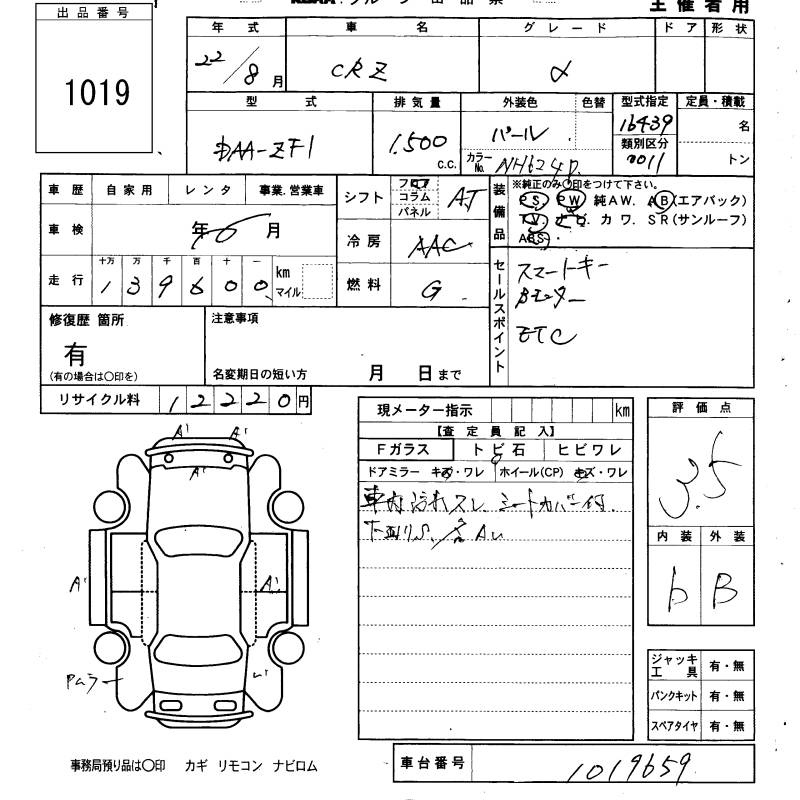 出品番号
1019
主催者用
年式 車名 グレード ドア 形状
22/8月 CRZ α
型式 排気量 外装色 色替 型式指定 定員・積載
DAA-ZF1 1.500 c.c. パール 16439 名
カラーNo. NH624P 類別区分 0011 トン
車歴 自家用 レンタ 事業.営業車
車検 年 6 月
走行 十万 万 千 百 十 一
139600 km マイル
シフト フロア コラム パネル AT
冷房 AAC
燃料 G
装備品 ※純正のみ○印をつけて下さい。
PS. PW 純AW. AB(エアバック)
TV. ナビ. カワ. SR(サンルーフ)
ABS.
セールスポイント
スマートキー
Bモニター
ETC
修復歴 箇所
有
(有の場合は○印を)
注意事項
名変期日の短い方 月 日まで
リサイクル料 12220円
現メーター指示 km
【査定員記入】
Fガラス トビ石 ヒビワレ
ドアミラー キズ・ワレ ホイール(CP) キズ・ワレ
車内汚れスレ シートカバー付.
評価点
3.5
内装 外装
b B
A' A'
A'
A' A'
Pムラ
ジャッキ工具 有・無
パンクキット 有・無
スペアタイヤ 有・無
事務局預り品は○印 カギ リモコン ナビロム
車台番号 1019659